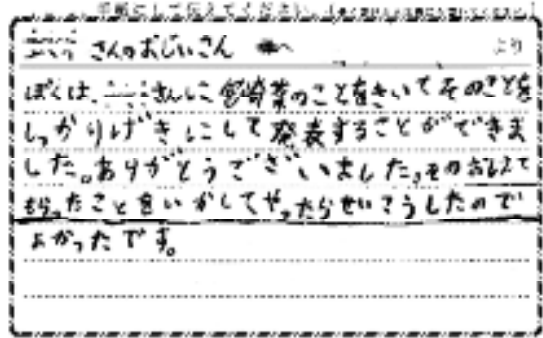 手紙にして伝えてください。
さんのおじいさん へ より
ぼくは、さんに宮崎茶のことをきいてそのことを
しっかりげきにして発表することができま
した。ありがとうございました。そのおしえて
もらったことをいかしてやったらせいこうしたので
よかったです。